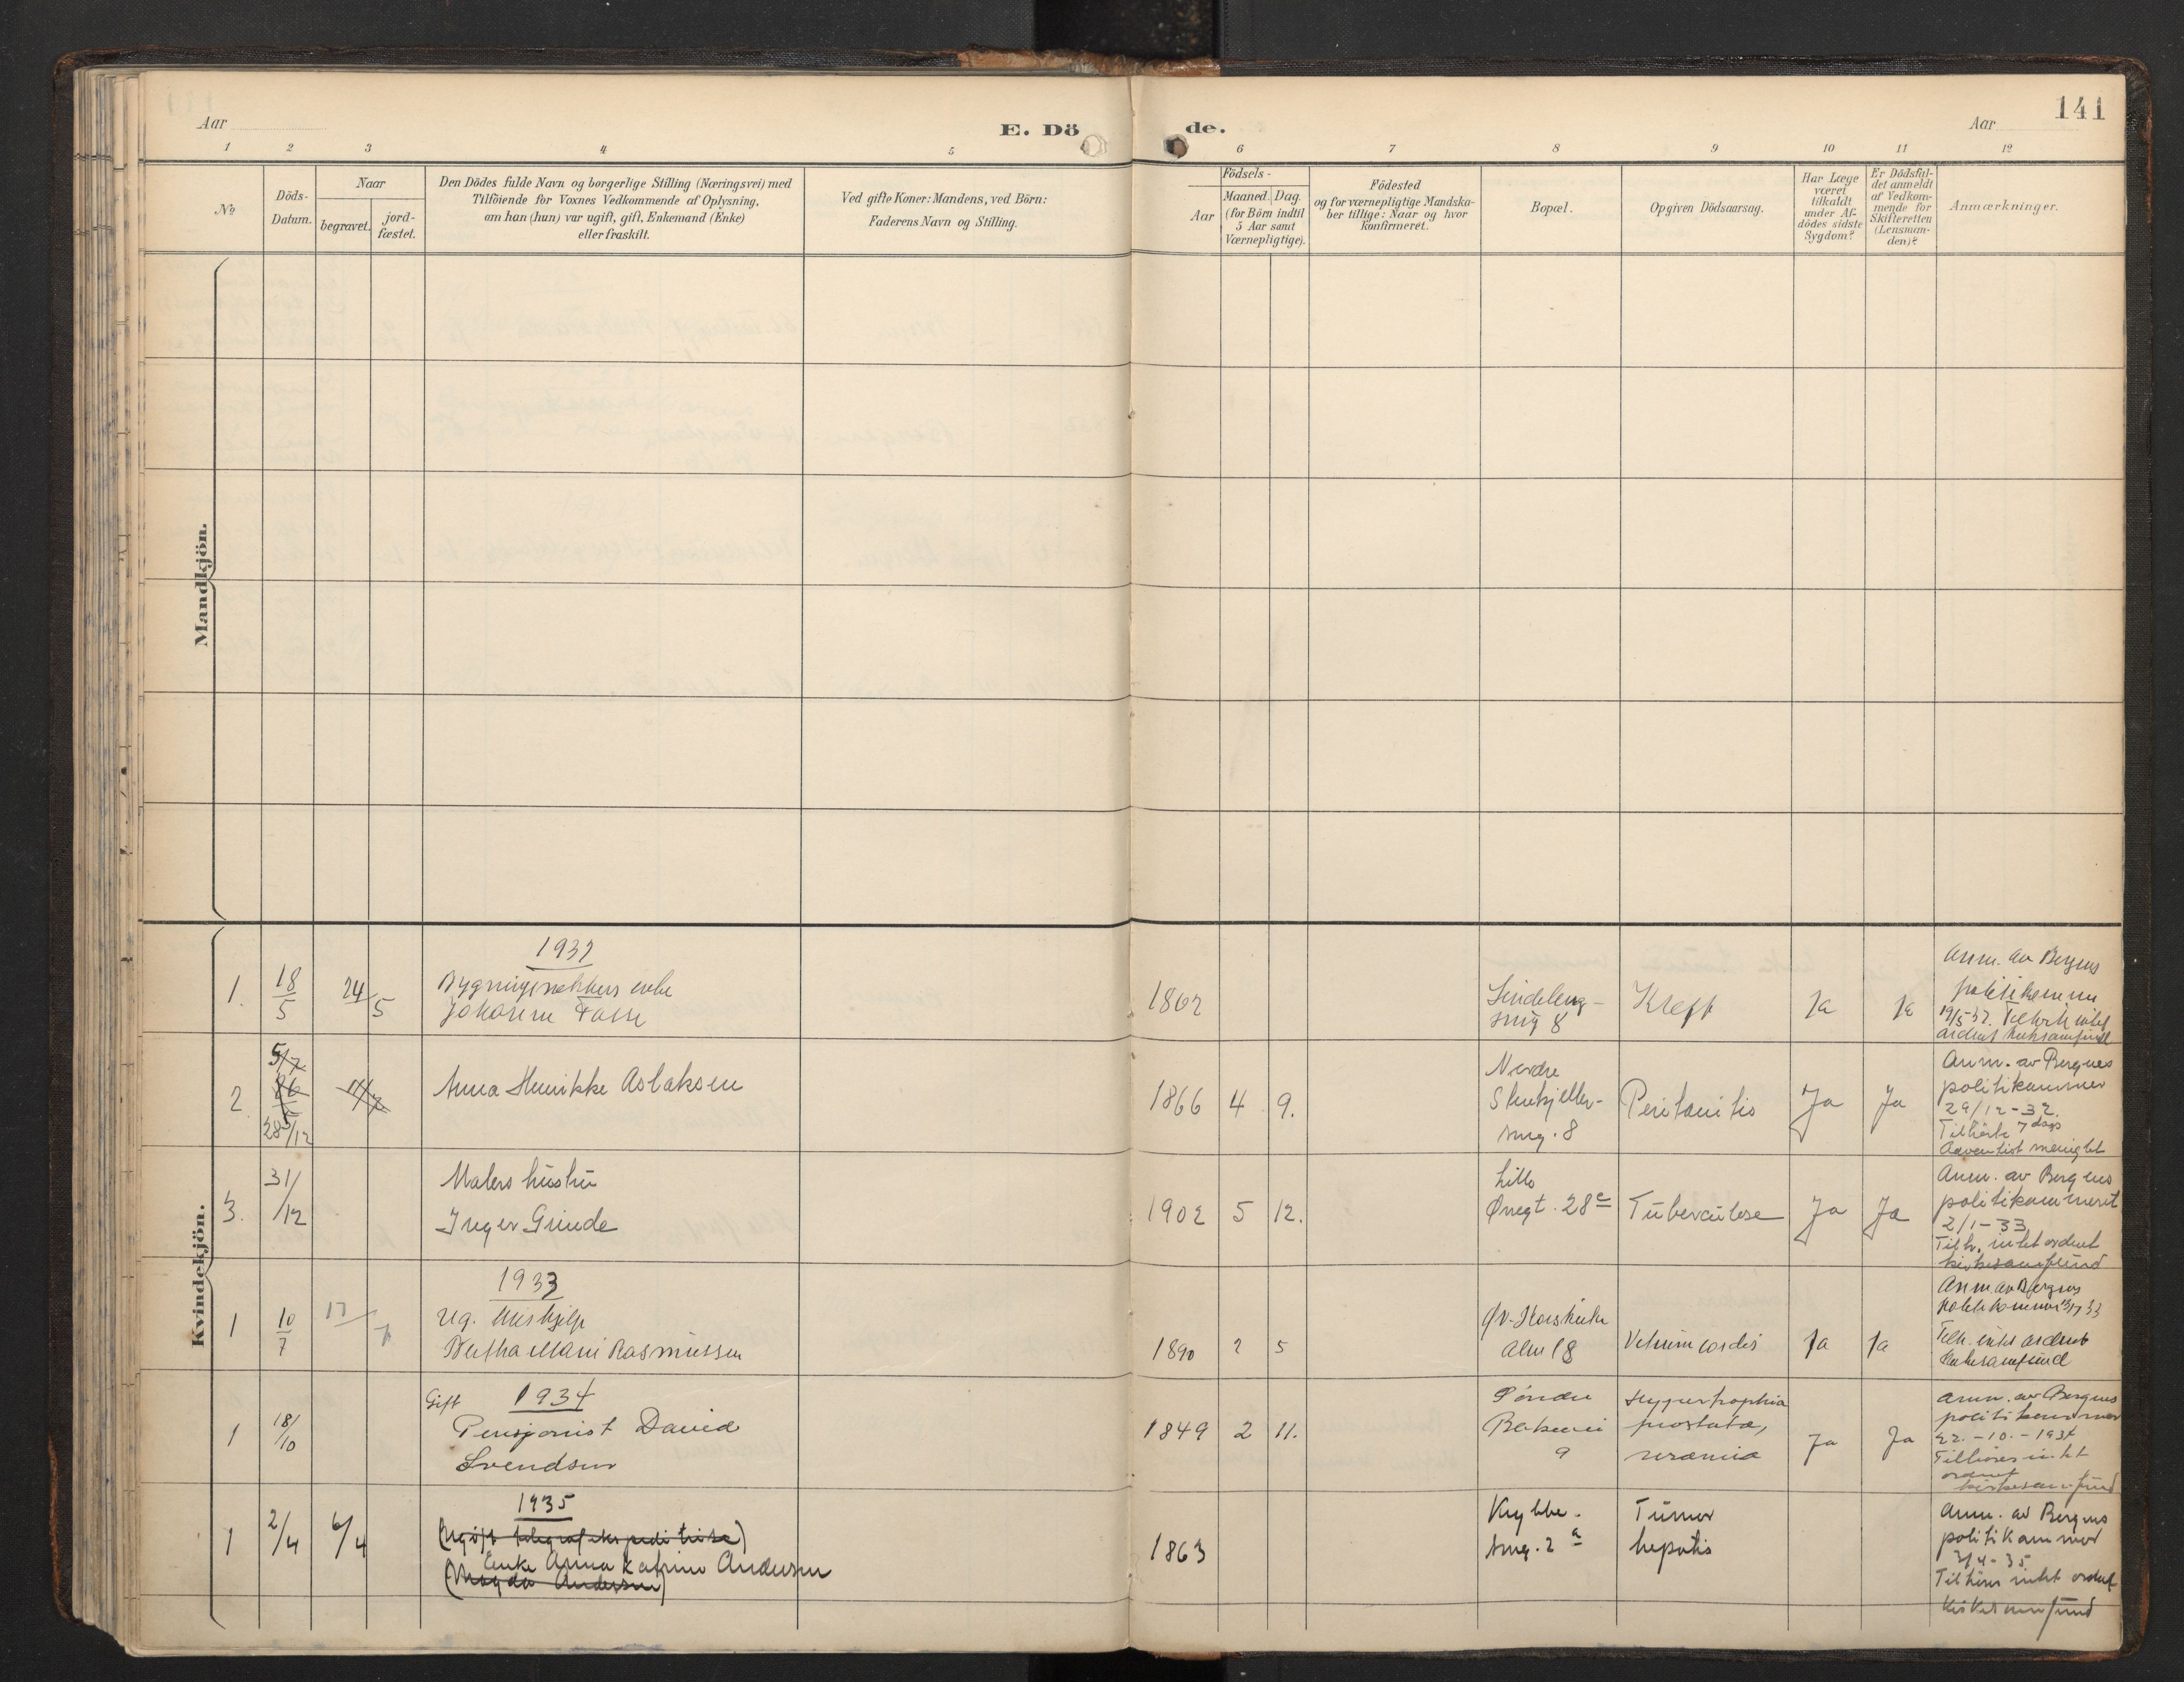 141
Aar
E. Dö
de.
Aar
1 2 3 4 5 6 7 8 9 10 11 12
No
Döds-
Datum.
Naar
begravet.
jord-
fæstet.
Den Dödes fulde Navn og borgerlige Stilling (Næringsvei) med
Tilföiende for Voxnes Vedkommende af Oplysning,
om han (hun) var ugift, gift, Enkemand (Enke)
eller fraskilt.
Ved gifte Koner: Mandens, ved Börn:
Faderens Navn og Stilling.
Födsels-
Aar
Maaned. Dag.
(for Börn indtil
5 Aar samt
Værnepligtige).
Födested
og for værnepligtige Mandska-
ber tillige: Naar og hvor
konfirmeret.
Bopæl.
Opgiven Dödsaarsag.
Har Læge
været
tilkaldt
under Af-
dödes sidste
Sygdom?
Er Dödsfal-
det anmeldt
af Vedkom-
mende for
Skifteretten
(Lensman-
den)?
Anmærkninger.
Mandkjön.
Kvindekjön.
1. 18/5 24/5
enke
1862
smug 8
Kreft
Ja
Ja
Anm. av Bergens
19/5-32.
2. 5/7
28/12
11/7
Anna Henrikke Aslaksen
1866 4 9.
Nedre
Stenkjeller-
smg. 8
Peritonitis
Ja
Ja
Anm. av Bergens
politikammer
29/12-32.
Tilhørte 7 dags
Adventist menighet
3. 31/12
Malers hustru
Inger Grinde
1902 5 12.
Lille
Øvregt. 28c
Tuberculose
Ja
Ja
Anm. av Bergens
politikammeret
2/1-33
Tilh. intet ordent
kirkesamfund
1933
1 10/7 17/7
Ug. Hushjelp
Bertha Marie Rasmussen
1890 2 5
Alm 18
Vitium cordis
Ja
Ja
Anm. av Bergens
Tilh. intet ordent
kirkesamfund
Gift 1934
1 18/10
Pensjonist David
Svendsen
1849 2 11.
Søndre
9
Hypertrophia
prostatæ,
uræmia
Ja
Ja
Anm. av Bergens
politikammer
22.-10.-1934
Tilhører intet
ordnet
kirkesamfund
1935
1 2/4 6/4
(Ugift telegrafekspeditrise)
Enke Anna Katrine Andersen
(Magda Andersen)
1863
Krybbe-
smg. 2a
Tumor
hepatis
Anm. av Bergens
politikammer
3/4-35
Tilhører intet ordnet
kirkesamfund